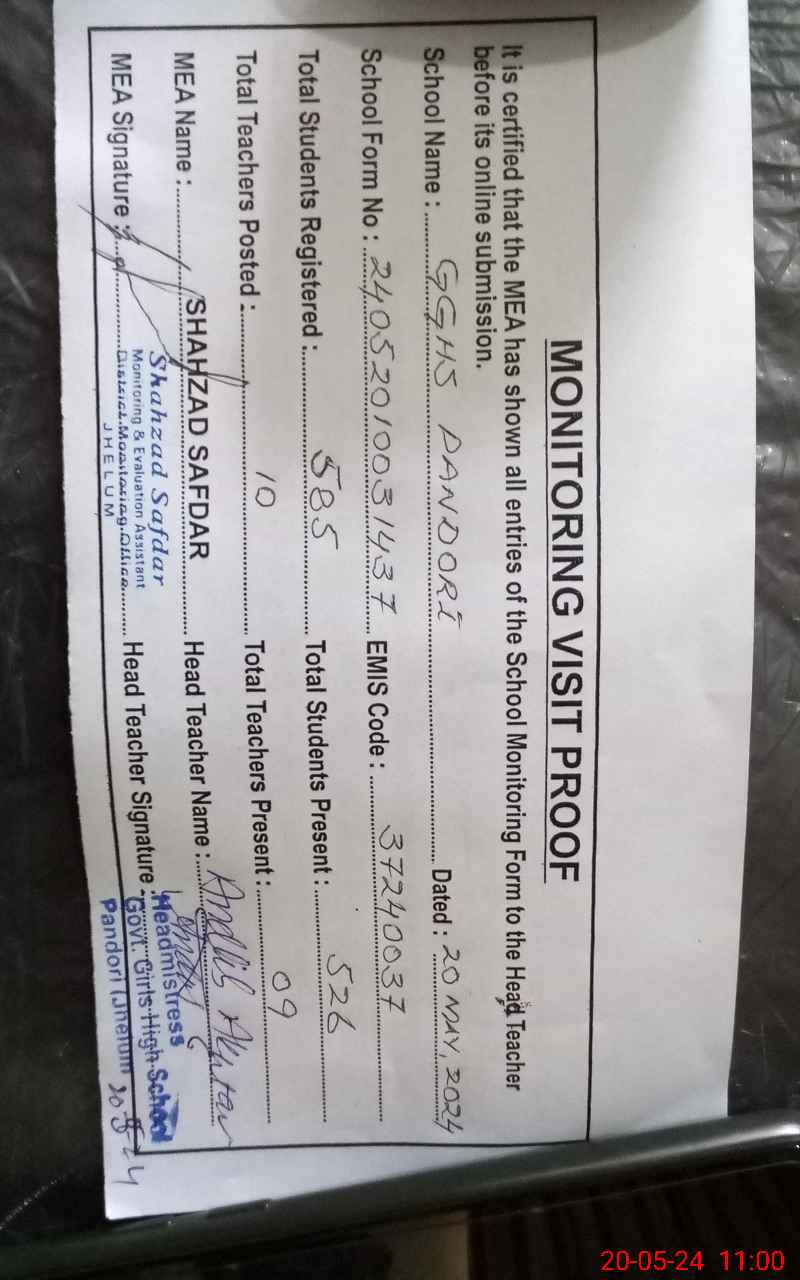 MONITORING VISIT PROOF
It is certified that the MEA has shown all entries of the School Monitoring Form to the Head Teacher
before its online submission.
School Name : GGHS PANDORI Dated : 20 MAY, 2024
School Form No : 2405201003 1437 EMIS Code : 37240037
Total Students Registered : 585 Total Students Present : 526
Total Teachers Posted : 10 Total Teachers Present : 09
MEA Name : SHAHZAD SAFDAR Head Teacher Name : Andlib Akhtar
MEA Signature : Head Teacher Signature :
Shahzad Safdar
Monitoring & Evaluation Assistant
District Monitoring Office
JHELUM
Headmistress
Govt. Girls High School
Pandori (Jhelum)
20-5-24
20-05-24 11:00